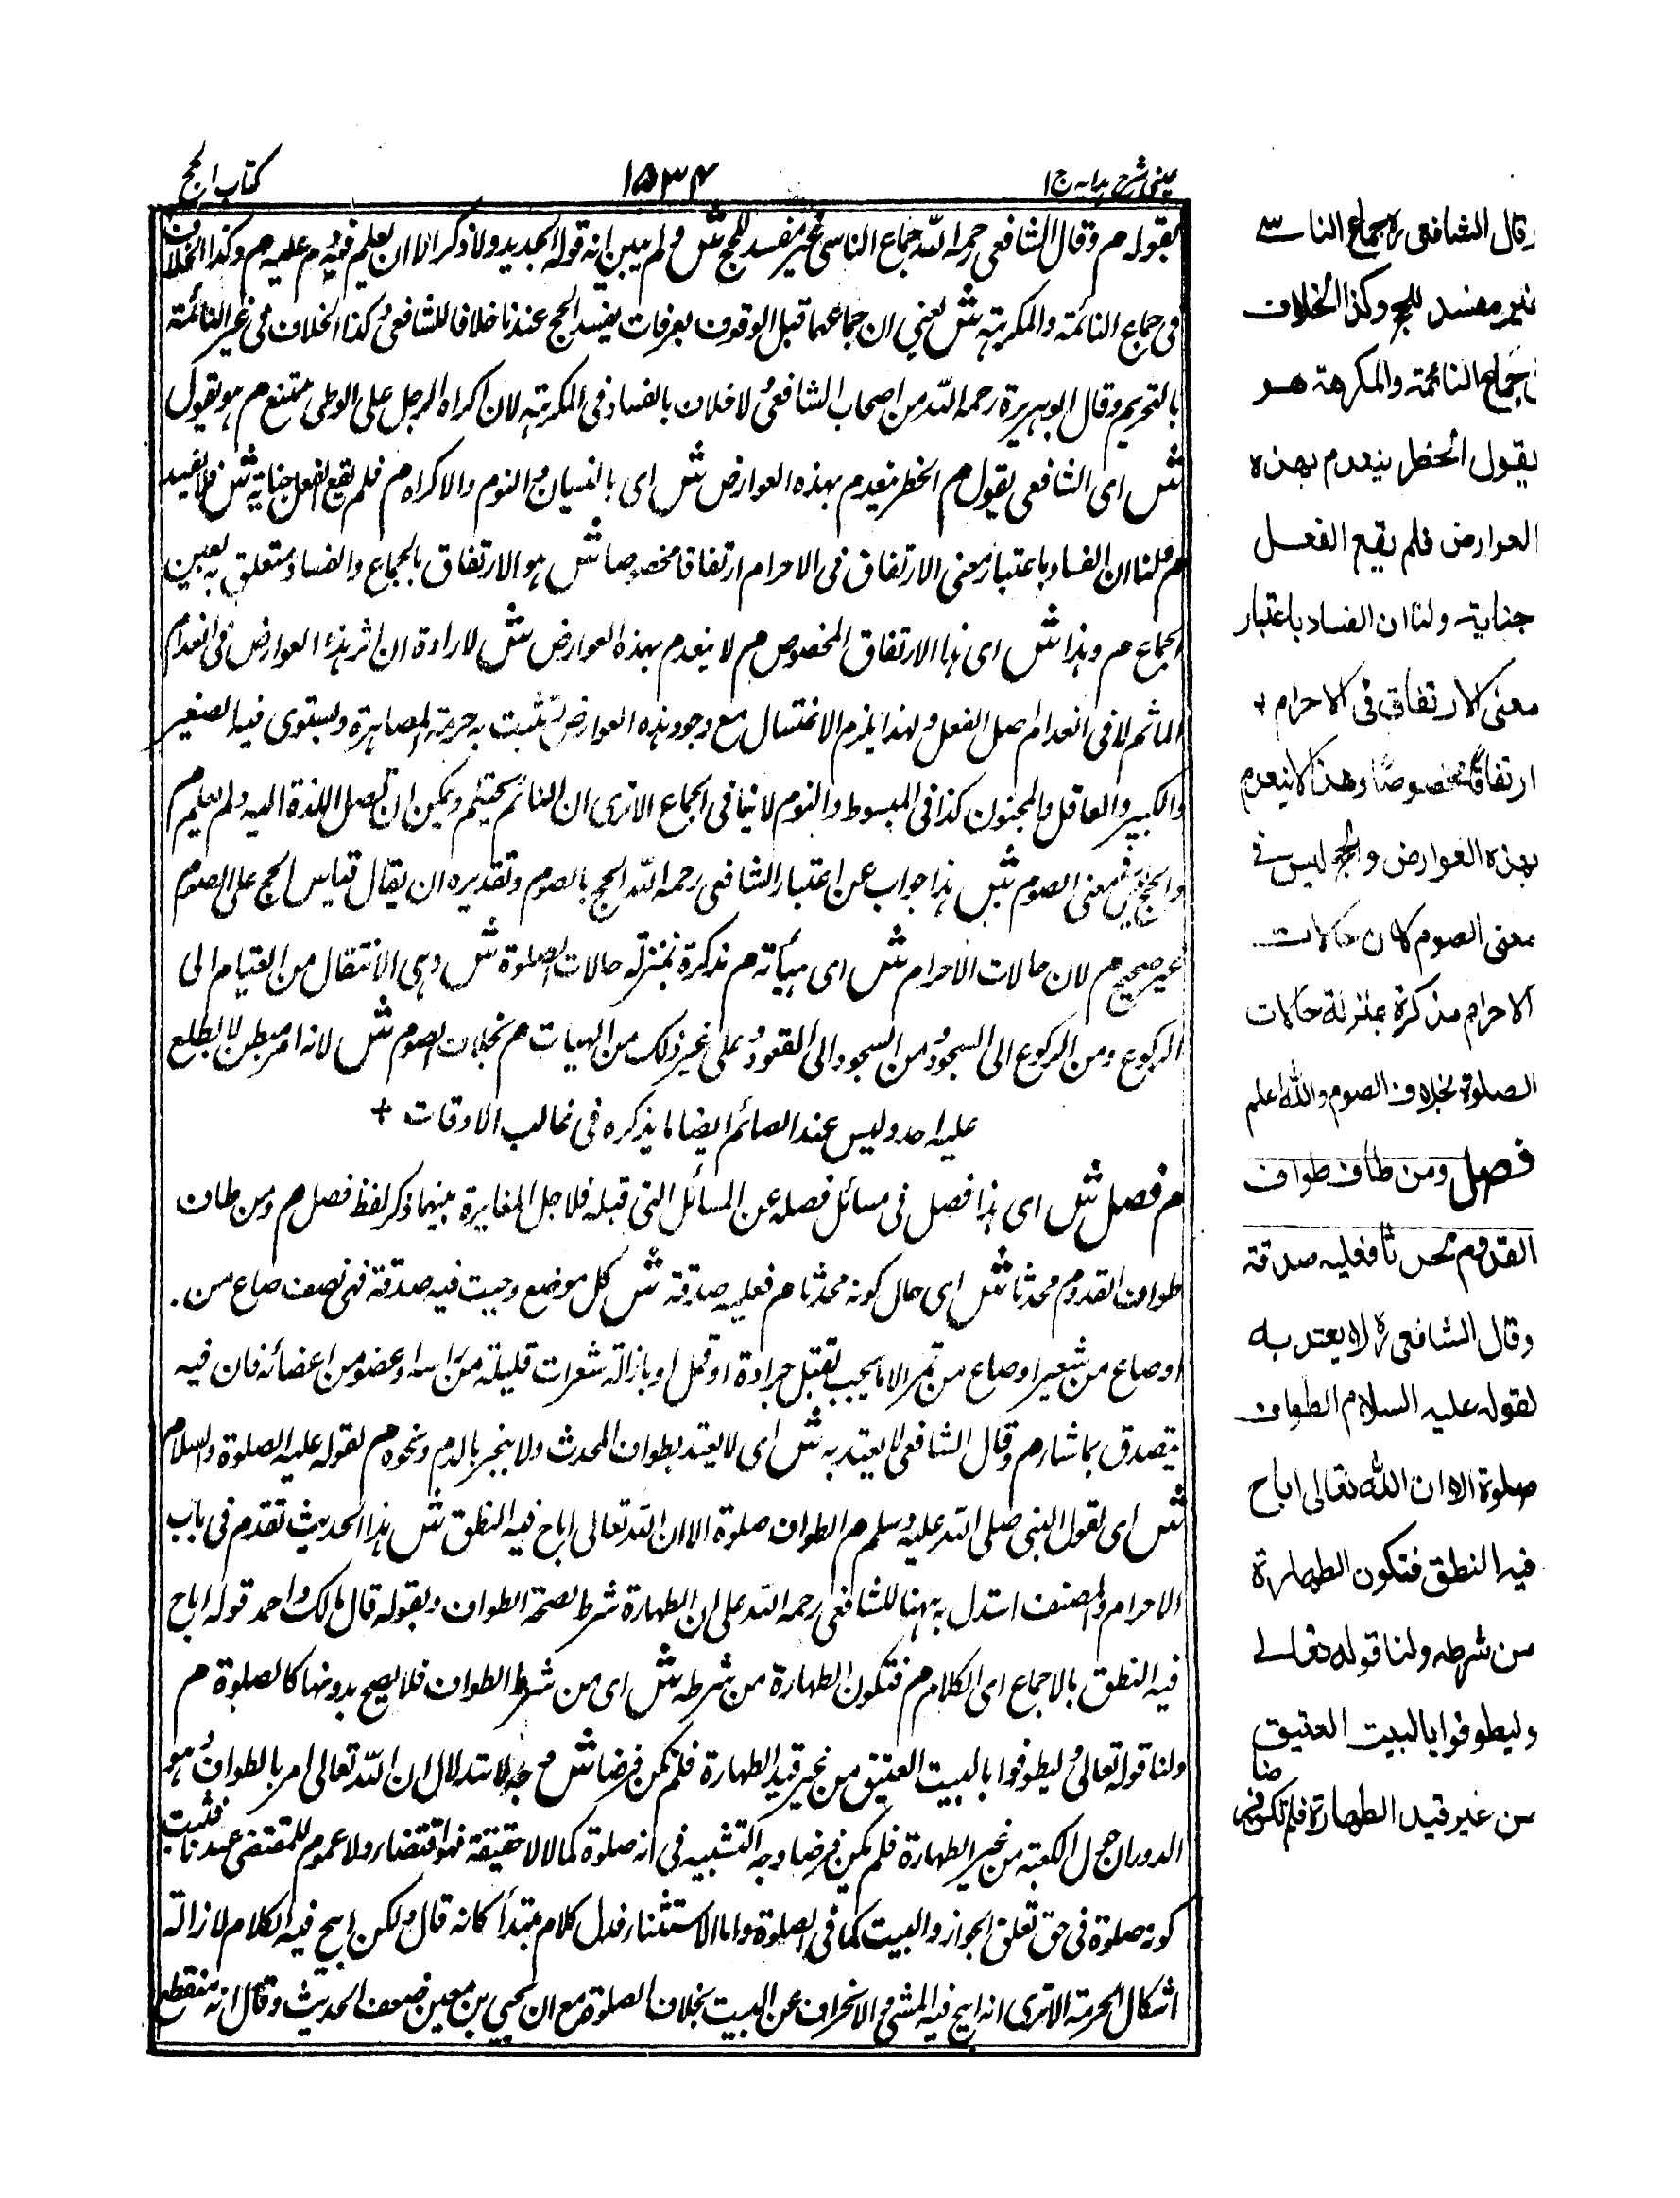 عینی شرح ہدایہ ج ١
١٥٣٤
کتاب الحج
بقوله م وقال الشافعي رحمه الله جماع الناسي غير مفسد للحج ش ولم يبين انه قوله الجديد ولا ذكر انا ان يعلم عليه م وكذا الخلاف
في جماع النائمة والمكرهة ش يعني ان جماعهما قبل الوقوف بعرفات يفسد الحج عندنا خلافا للشافعي وكذا الخلاف في غير النائمة
بالتحريم وقال ابو هريرة رحمه الله من اصحاب الشافعي لا خلاف بالفساد في المكرهة لان اكراه الرجل على الوطى ممتنع م هو يقول
ش اى الشافعي يقول م الحظر ينعدم بهذه العوارض ش اى بالنسيان والنوم والاكراه م فلم يقع الفعل جناية ش فلا يفسد
م ولنا ان الفساد باعتبار معنى الارتفاق في الاحرام ارتفاقا مخصوصا ش هو الارتفاق بالجماع والفساد متعلق به بعين
الجماع م وهذا ش اى هذا الارتفاق المخصوص م لا ينعدم بهذه العوارض ش لارادة ان اثر هذه العوارض في انعدام
الماثم لا في انعدام اصل الفعل ولهذا يلزم الاغتسال مع وجود هذه العوارض وتثبت به حرمة المصاهرة ويستوى فيه الصغير
والكبير والعاقل والمجنون كذا في المبسوط والنوم لا ينافي الجماع الا ترى ان النائم يحتلم ويمكن ان تصل اللذة اليه ولم يعلم م
والحج ليس في معنى الصوم ش هذا جواب عن اعتبار الشافعي رحمه الله الحج بالصوم وتقديره ان يقال قياس الحج على الصوم
غير صحيح م لان حالات الاحرام ش اى هيأته م مذكرة بمنزلة حالات الصلوة ش وهى الانتقال من القيام الى
الركوع ومن الركوع الى السجود ومن السجود الى القعود وعلى غير ذلك من الهيات م بخلاف الصوم ش لانه امر مبطن لا يطلع
عليه احد وليس عند الصائم ايضا ما يذكره في غالب الاوقات +
م فصل ش اى هذا فصل في مسائل فصله عن المسائل التى قبله فلاجل المغايرة بينهما ذكر لفظ فصل م ومن طاف
طواف القدوم محدثا ش اى حال كونه محدثا م فعليه صدقة ش كل موضع وجبت فيه صدقة فهى نصف صاع من
او صاع من شعير او صاع من تمر الا ما يجب بقتل جرادة او قمل او بازالة شعرات قليلة من راسه او عضو من اعضائه فان فيه
يتصدق بما شاء م وقال الشافعي لا يعتد به ش اى لا يعتد بطواف المحدث ولا ينجبر بالدم ونحوه م لقوله عليه الصلوة والسلام
ش اى لقول النبى صلى الله عليه وسلم م الطواف صلوة الا ان الله تعالى اباح فيه النطق ش هذا الحديث تقدم في باب
الاحرام والمصنف استدل به ههنا للشافعي رحمه الله على ان الطهارة شرط لصحة الطواف وبقوله قال مالك واحمد قوله اباح
فيه النطق بالاجماع اى الكلام م فتكون الطهارة من شرطه ش اى من شرط الطواف فلا يصح بدونها كالصلوة م
ولنا قوله تعالى وليطوفوا بالبيت العتيق من غير قيد الطهارة فلم تكن فرضا ش وجه الاستدلال ان الله تعالى امر بالطواف وهو
الدوران حول الكعبة من غير الطهارة فلم يكن فرضا وجه التشبيه في انه صلوة كمالا لا حقيقة فهو اقتضاء ولا عموم للمقتضى عندنا فثبت
كونه صلوة في حق تعلق الجواز والبيت كما في الصلوة واما الاستثناء فدل كلام مبتدأ كانه قال ولكن ابيح فيه الكلام لازالة
اشكال الحرمة الا ترى انه ابيح فيه المشى والانحراف عن البيت بخلاف الصلوة مع ان يحيى بن معين ضعف الحديث وقال انه منقطع
وقال الشافعی رہ جماع الناسے
غير مفسد للحج وكذا الخلاف
في جماع النائمة والمكرهة هو
يقول الحظر ينعدم بهذه
العوارض فلم يقع الفعل
جناية ولنا ان الفساد باعتبار
معنى الارتفاق في الاحرام +
ارتفاقا مخصوصا وهذا لا ينعدم
بهذه العوارض والحج ليس في
معنى الصوم لان حالات
الاحرام مذكرة بمنزلة حالات
الصلوة بخلاف الصوم والله اعلم
فصل ومن طاف طواف
القدوم محدثا فعليه صدقة
وقال الشافعی رہ لا يعتد به
لقوله عليه السلام الطواف
صلوة الا ان الله تعالى اباح
فيه النطق فتكون الطهارة
من شرطه ولنا قوله تعالے
وليطوفوا بالبيت العتيق
من غير قيد الطهارة فلم تكن فرضا